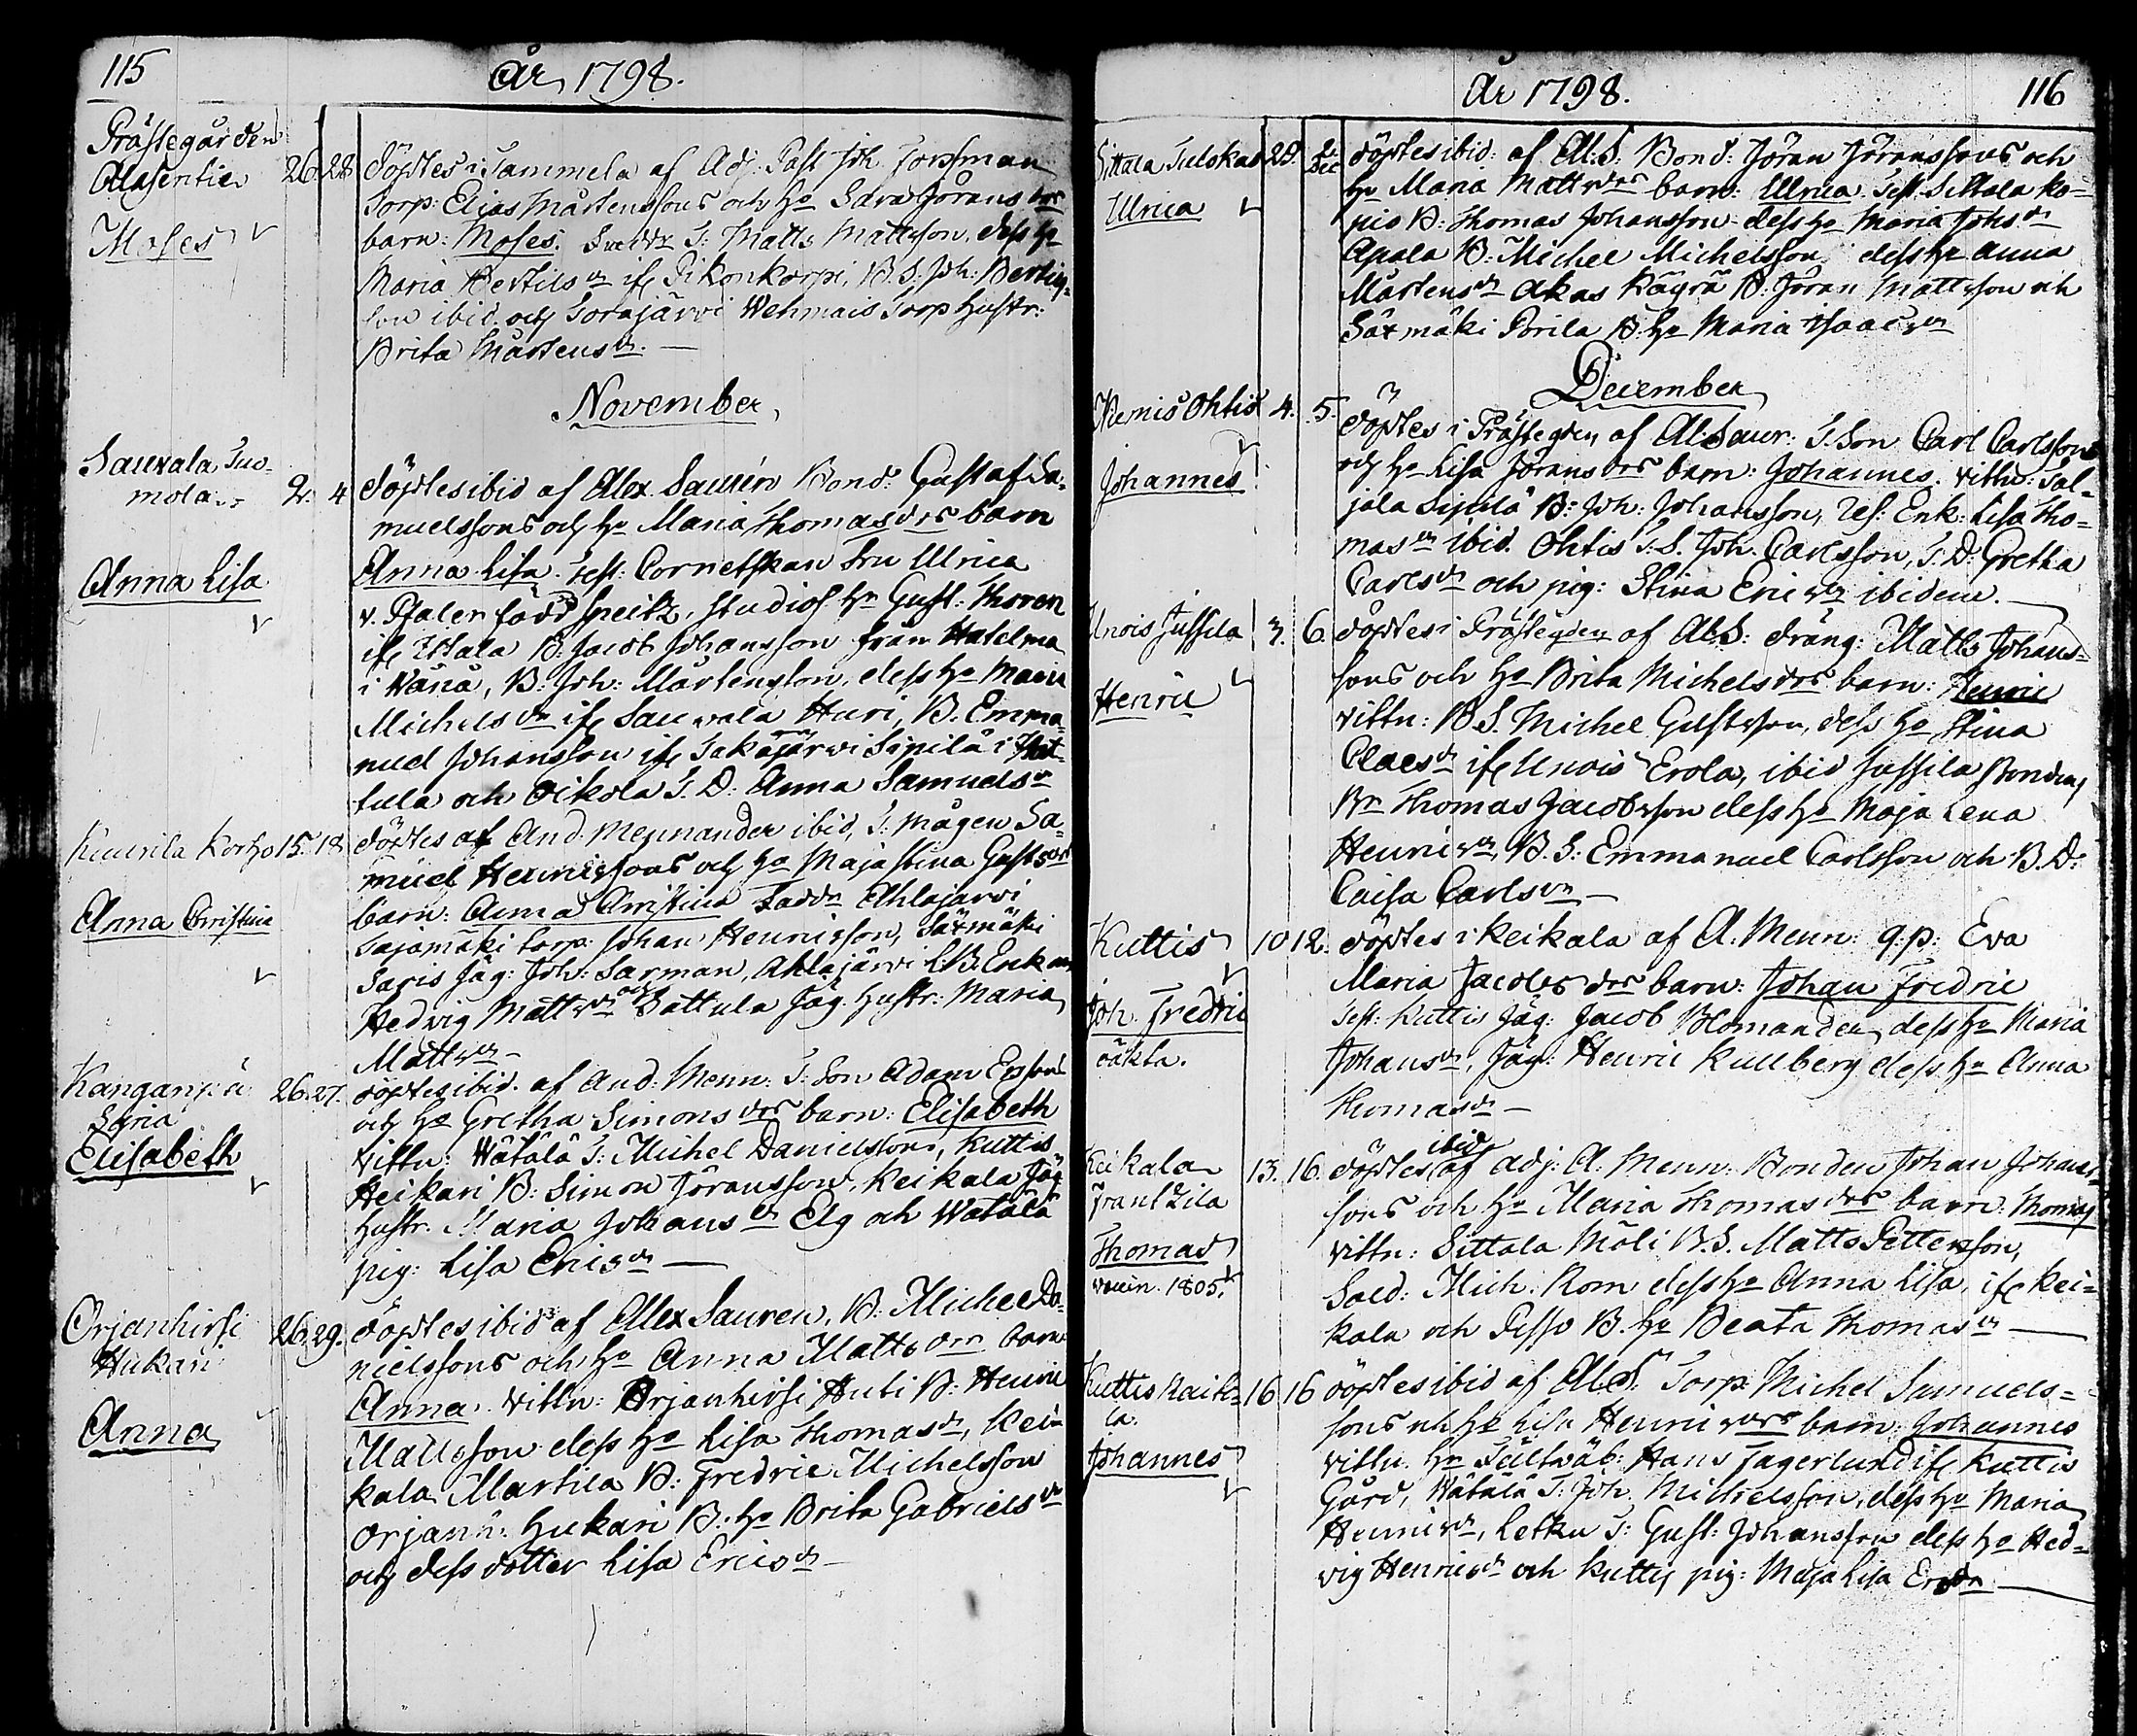 115
År 1798.
Prästegården
Alasentie 26. 28. döptes i Tammela af Adj. Past. Joh. Forssman
Torp: Elias Mårtenssons och Ho Sara Jörans drs
Moses
barn: Moses. T: Matts Mattsson, dess Ho
Maria Bertils dr if Pikonkorpi, B.S: Joh: Bertils=
son ibid. och Torajärvi Wehmais Torp hustr:
Brita Mårtens dr.
November
Sauvala Tuo=
mola 2. 4. döptes ibid af Alex Saurén Bond: Gustaf Sa=
muelssons och Ho Maria Thomas drs barn
Anna Lisa
Anna Lisa. Test: Cornetskan Fru Ulrica
v. Pfaler född Speitz, Studios. Hr Gust: Thoren
if Uttala B: Jacob Johansson från Hatelma
i Wånå, B: Joh: Mårtensson, dess Ho Maria
Michels dr if Sauvala Huri, B. Emma=
nuel Johansson if Takajärvi Sipilä i Hat=
tula och Oikola T. D: Anna Samuels dr
Kuurila Kortzo 15. 18. döptes af And. Mennander ibid, T: mågen Sa=
muel Henricssons och Ho Maja Stina Gusts drs
Anna Christina
barn: Anna Christina Ahlajärvi
Sajamäki Torp: Johan Henricsson, Säxmäki
Saris Jäg: Joh: Sarman, Ahlajärvi Enkan
Hedvig Matts dr och Sattula Jäg. hustr: Maria
Matts dr
Kanganpä
Seria 26. 27. döptes ibid. af And: Menn: T: Son Adam Ersons
och Ho Gretha Simons drs barn: Elisabeth
Elisabeth
vittn: Wätälä T: Michel Danielsson, Kuttis
Heikari B: Simon Jöransson, Keikala Jäg.
hustr. Maria Johans dr Elg och Wätälä
pig: Lisa Erics dr
Orjanhirsi
Hukari 26. 29. döptes ibid af Alex Sauren, B: Michel Da=
nielssons och Ho Anna Matts drs barn
Anna
Anna. vittn: Orjanhirsi Huti B: Henric
Mattsson dess Ho Lisa Thomas dr, Kei=
kala Martila B: Fredric Michelsson
Orjanh: Hukari B: Ho Brita Gabriels dr
och dess dotter Lisa Erics dr
År 1798. 116
Sittala Tulokas 29. 2. Dec döptes ibid: af Al.S: Bond: Jöran Jöranssons och
Ho Maria Matts drs barn: Ulrica Test. Sittala Ko=
Ulrica
pio B: Thomas Johansson dess Ho Maria Johs dr
Apala B: Michel Michelsson, dess Ho Anna
Mårtens dr Akas Kägrä B: Jöran Mattsson och
Säxmäki Porila B: Ho Maria Isaacs dr
December
Niemis Ohtis 4. 5. döptes i Prästegden af Al: Saur: T. Son Carl Carlssons
och Ho Lisa Jörans drs barn: Johannes. vittn: Tal=
Johannes
jala Sipilä B: Joh: Johansson, Enk: Lisa Tho=
mas dr ibid. Ohtis T.S. Joh. Carlsson, T.D: Gretha
Carls dr och pig: Stina Erics dr ibidem.
Unois Jussila 3. 6. döptes i Prästegden af Al.S: dräng: Matts Johans=
sons och Ho Brita Michels drs barn: Henric
Henric
vittn: B S. Michel Gustsson, dess Ho Stina
Claes dr if Unois Erola, ibid Jussila Bondens
Br Thomas Jacobsson dess Ho Maja Lena
Henrics dr, B. S: Emmanuel Carlsson och B. D:
Caisa Carls dr
Kuttis 10 12. döptes i Keikala af A: Menn: q.p: Eva
Maria Jacobs drs barn: Johan Fredric
Joh. Fredric
oäkta.
Test: Kuttis Jäg: Jacob Blomander dess Ho Maria
Johans dr, Jäg: Henric Kullberg dess Ho Anna
Thomas dr
Keikala
Frantzila 13. 16. döptes ibid af Adj: A: Menn: Bonden Johan Johans=
sons och Ho Maria Thomas drs barn: Thomas
Thomas
vaccin. 1805.
vittn: Sittala Möli B.S. Matts Pettersson,
Sold: Mich. Rom dess Ho Anna Lisa, if Kei=
kala och Pisso B. Ho Beata Thomas dr
Kuttis Kaiti=
la. 16 16 döptes ibid af Al.S. Torp: Michel Samuels=
sons och Ho Lisa Henrics drs barn: Johannes
Johannes
vittn. Hr Fältwäb: Hans Fagerlund if Kuttis
Gård, Wätälä T: Joh. Michelsson, dess Ho Maria
Henrics dr, Letku T: Gust: Johansson dess Ho Hed=
vig Henrics dr och Kuttis pig: Maja Lisa Ers dr